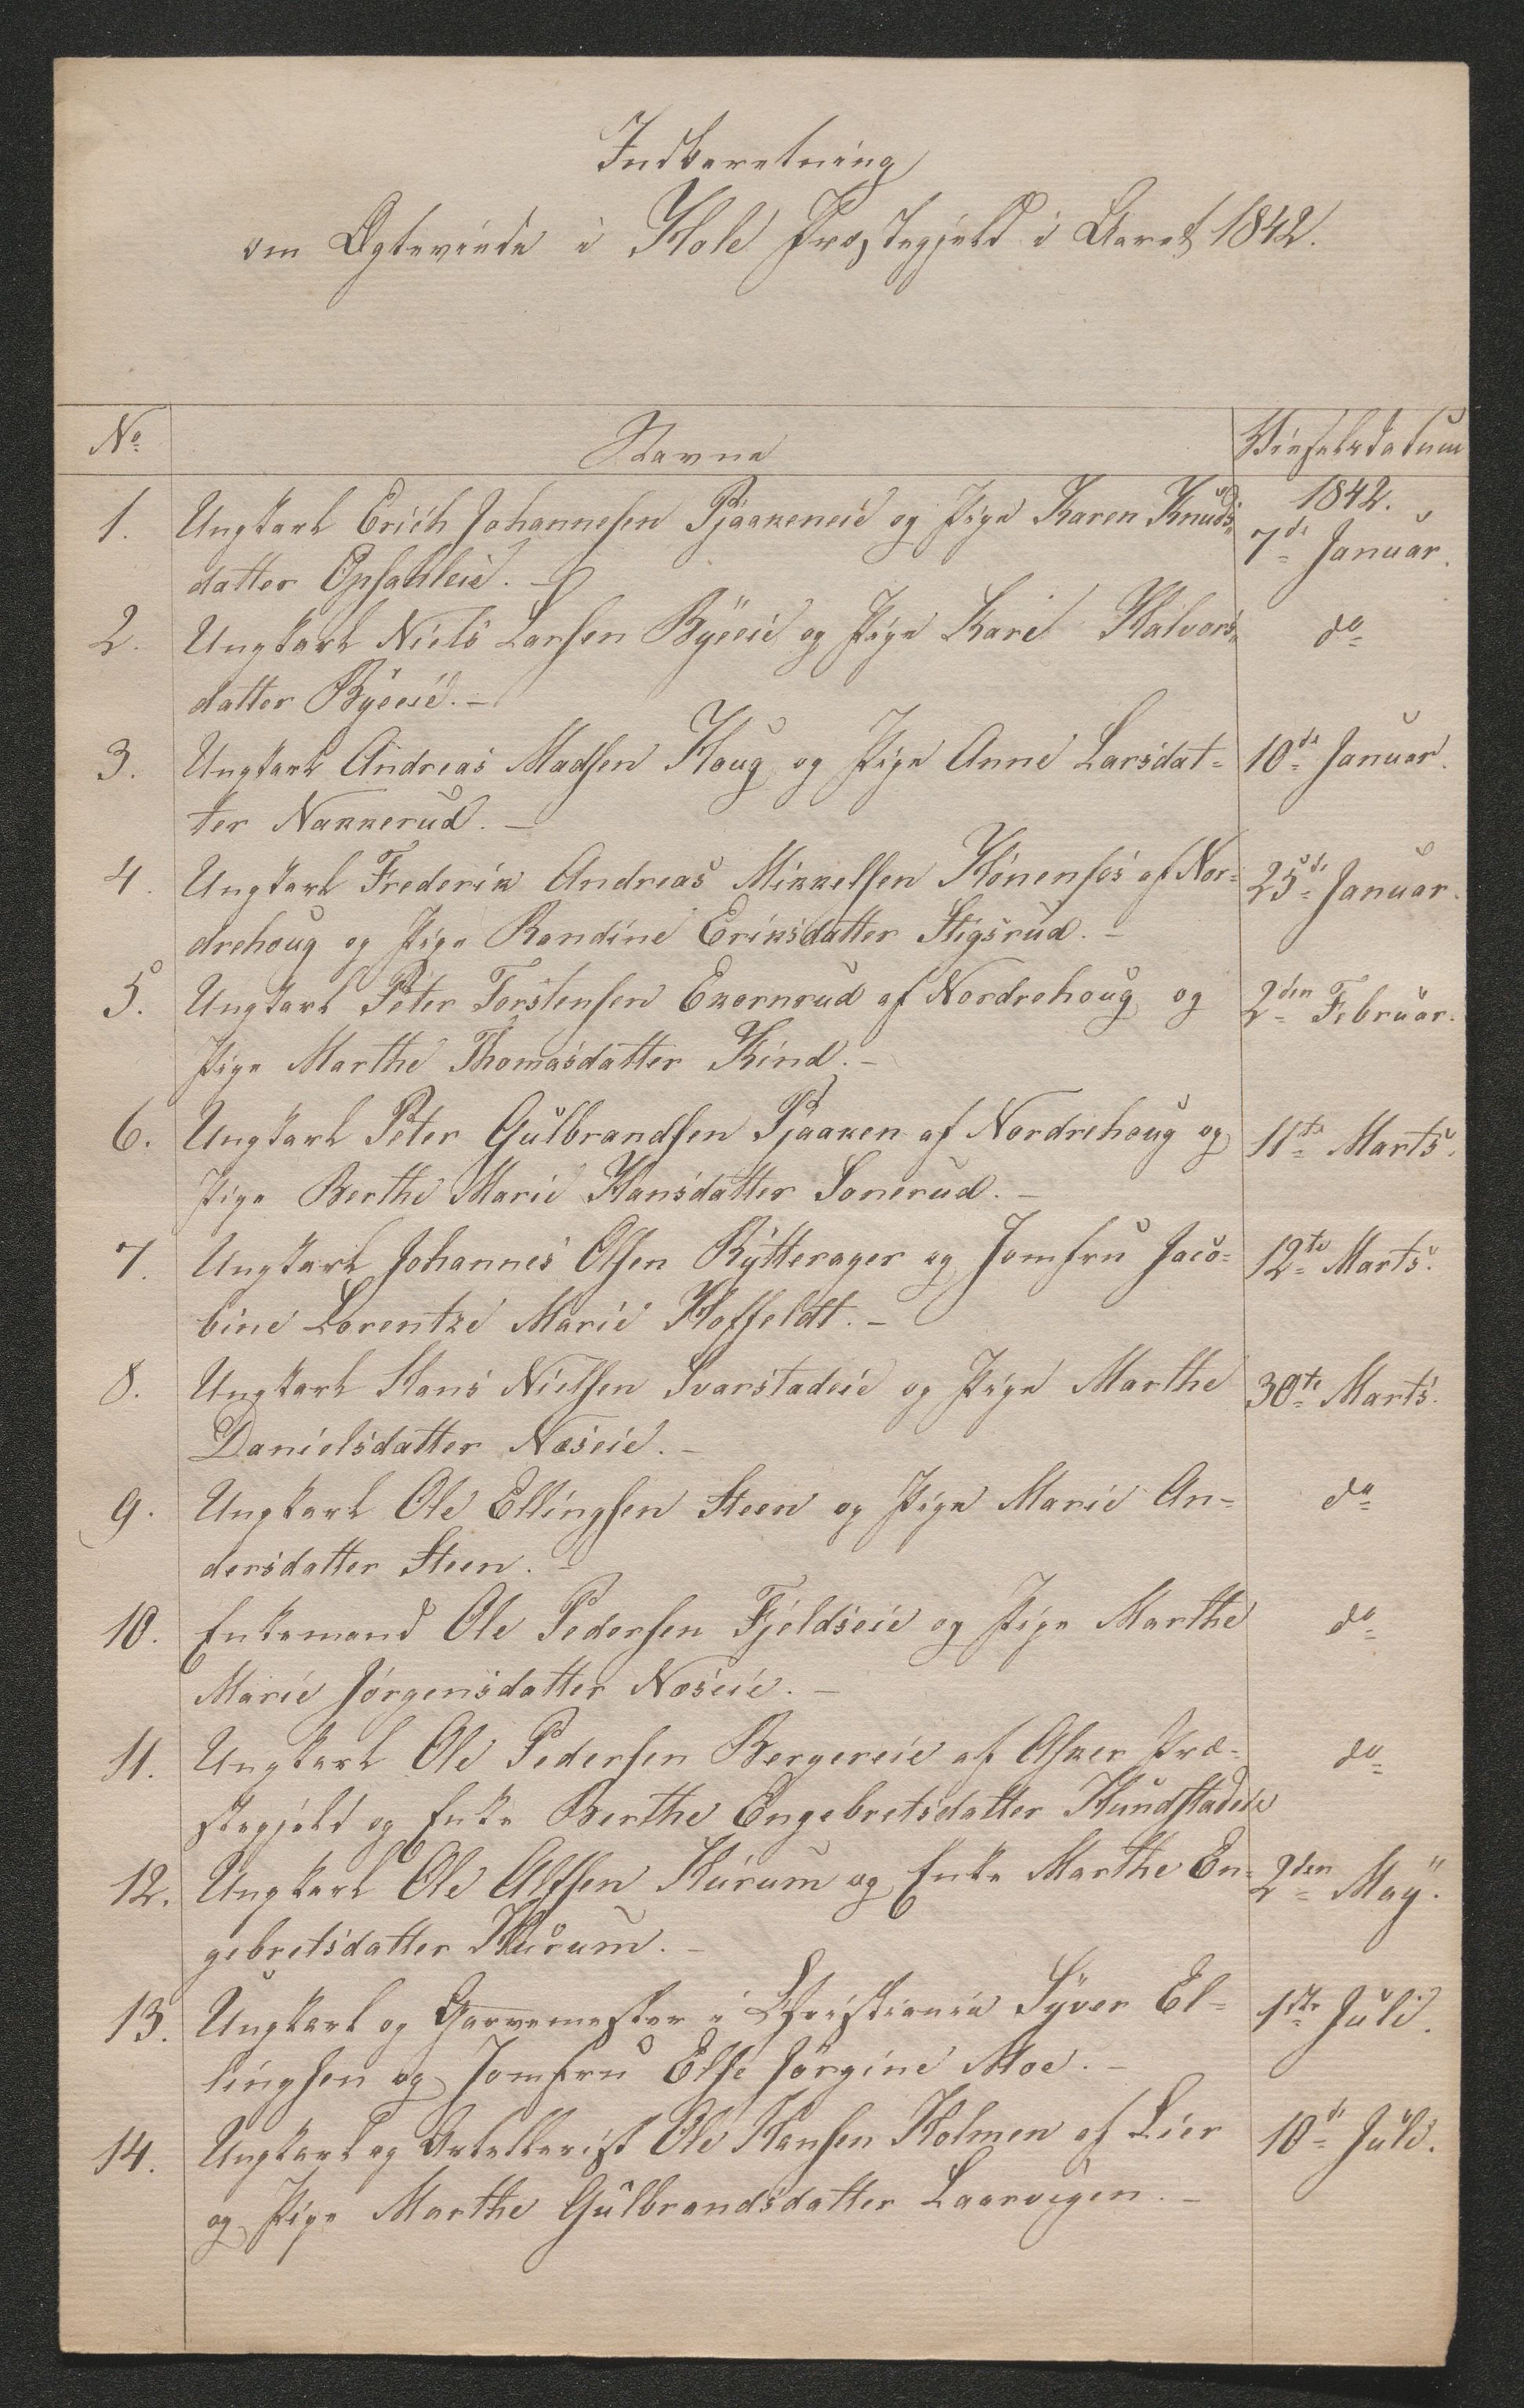 Indberetning
om Ægteviede i Hole Præstegjeld i Aaret 1842.
No Navne Vielsesdatum
1842.
1. Ungkarl Erich Johannesen Pjaakeneie og Pige Karen Knuds= 7de Januar.
datter Opsahleie. –
2. Ungkarl Niels Larsen Byeeie og Pige Kari Halvors= do
datter Byeeie. –
3. Ungkarl Andreas Madsen Houg og Pige Anne Larsdat= 10de Januar.
ter Nakkerud. –
4. Ungkarl Frederik Andreas Mikkelsen Hönenfos af Nor= 25de Januar.
drehoug og Pige Randine Eriksdatter Stigsrud. –
5. Ungkarl Peter Torstensen Ekornrud af Nordrehoug og 2den Februar.
Pige Marthe Thomasdatter Rind. –
6. Ungkarl Peter Gulbrandsen Pjaaken af Nordrehoug og 11te Marts.
Pige Berthe Marie Hansdatter Sonerud. –
7. Ungkarl Johannes Olsen Rytterager og Jomfru Jaco= 12te Marts.
bine Lorentze Marie Hoffeldt. –
8. Ungkarl Hans Nielsen Svarstadeie og Pige Marthe 30te Marts.
Danielsdatter Næseie. –
9. Ungkarl Ole Ellingsen Steen og Pige Marie An= do
dersdatter Steen. –
10. Enkemand Ole Pedersen Fjeldseie og Pige Marthe do
Marie Jörgensdatter Næseie. –
11. Ungkarl Ole Pedersen Bergereie af Asker Præ= do
stegjeld og Enke Berthe Engebretsdatter Hundstadeie
12. Ungkarl Ole Alfsen Hurum og Enke Marthe En= 2den May.
gebretsdatter Hurum. –
13. Ungkarl og Garvemester i Christiania Syver El= 1ste Juli.
lingsen og Jomfru Else Jörgine Moe. –
14. Ungkarl og Artellerist Ole Hansen Holmen af Lier 10de Juli.
og Pige Marthe Gulbrandsdatter Laarvigen. –